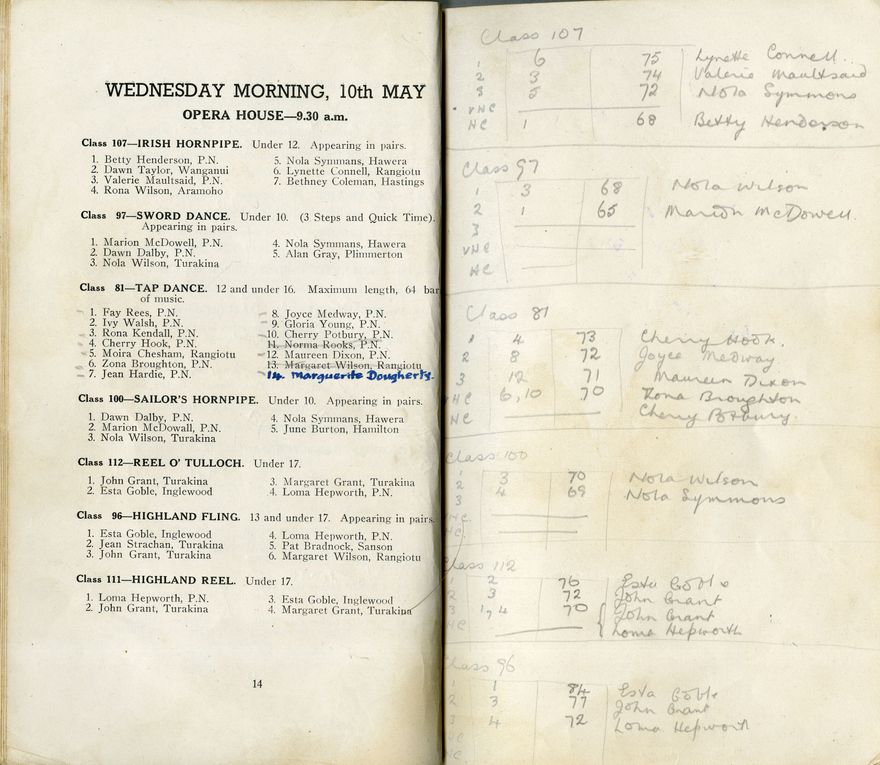 WEDNESDAY MORNING, 10th MAY
OPERA HOUSE—9.30 a.m.
Class 107—IRISH HORNPIPE. Under 12. Appearing in pairs.
1. Betty Henderson, P.N.
2. Dawn Taylor, Wanganui
3. Valerie Maultsaid, P.N.
4. Rona Wilson, Aramoho
5. Nola Symmans, Hawera
6. Lynette Connell, Rangiotu
7. Bethney Coleman, Hastings
Class 97—SWORD DANCE. Under 10. (3 Steps and Quick Time).
Appearing in pairs.
1. Marion McDowell, P.N.
2. Dawn Dalby, P.N.
3. Nola Wilson, Turakina
4. Nola Symmans, Hawera
5. Alan Gray, Plimmerton
Class 81—TAP DANCE. 12 and under 16. Maximum length, 64 bar
of music.
1. Fay Rees, P.N.
2. Ivy Walsh, P.N.
3. Rona Kendall, P.N.
4. Cherry Hook, P.N.
5. Moira Chesham, Rangiotu
6. Zona Broughton, P.N.
7. Jean Hardie, P.N.
8. Joyce Medway, P.N.
9. Gloria Young, P.N.
10. Cherry Potbury, P.N.
11. Norma Rooks, P.N.
12. Maureen Dixon, P.N.
13. Margaret Wilson, Rangiotu
14. Marguerite Dougherty.
Class 100—SAILOR'S HORNPIPE. Under 10. Appearing in pairs.
1. Dawn Dalby, P.N.
2. Marion McDowall, P.N.
3. Nola Wilson, Turakina
4. Nola Symmans, Hawera
5. June Burton, Hamilton
Class 112—REEL O' TULLOCH. Under 17.
1. John Grant, Turakina
2. Esta Goble, Inglewood
3. Margaret Grant, Turakina
4. Loma Hepworth, P.N.
Class 96—HIGHLAND FLING. 13 and under 17. Appearing in pairs.
1. Esta Goble, Inglewood
2. Jean Strachan, Turakina
3. John Grant, Turakina
4. Loma Hepworth, P.N.
5. Pat Bradnock, Sanson
6. Margaret Wilson, Rangiotu
Class 111—HIGHLAND REEL. Under 17.
1. Loma Hepworth, P.N.
2. John Grant, Turakina
3. Esta Goble, Inglewood
4. Margaret Grant, Turakina
14
Class 107
1 6 75 Lynette Connell.
2 3 74 Valerie Maultsaid
3 5 72 Nola Symmons
VHC
HC 1 68 Betty Henderson
Class 97
1 3 68 Nola Wilson
2 1 65 Marion McDowell.
3
VHC
HC
Class 81
1 4 73 Cherry Hook.
2 8 72 Joyce Medway.
3 12 71 Maureen Dixon
VHC 6,10 70 Zona Broughton
HC Cherry Potbury.
Class 100
1 3 70 Nola Wilson
2 4 69 Nola Symmons
3
VHC
HC
Class 112
1 2 76 Esta Goble
2 3 72 John Grant
3 1, 4 70 John Grant
HC Loma Hepworth
Class 96
1 1 84 Esta Goble
2 3 77 John Grant
3 4 72 Loma Hepworth
HC
HC